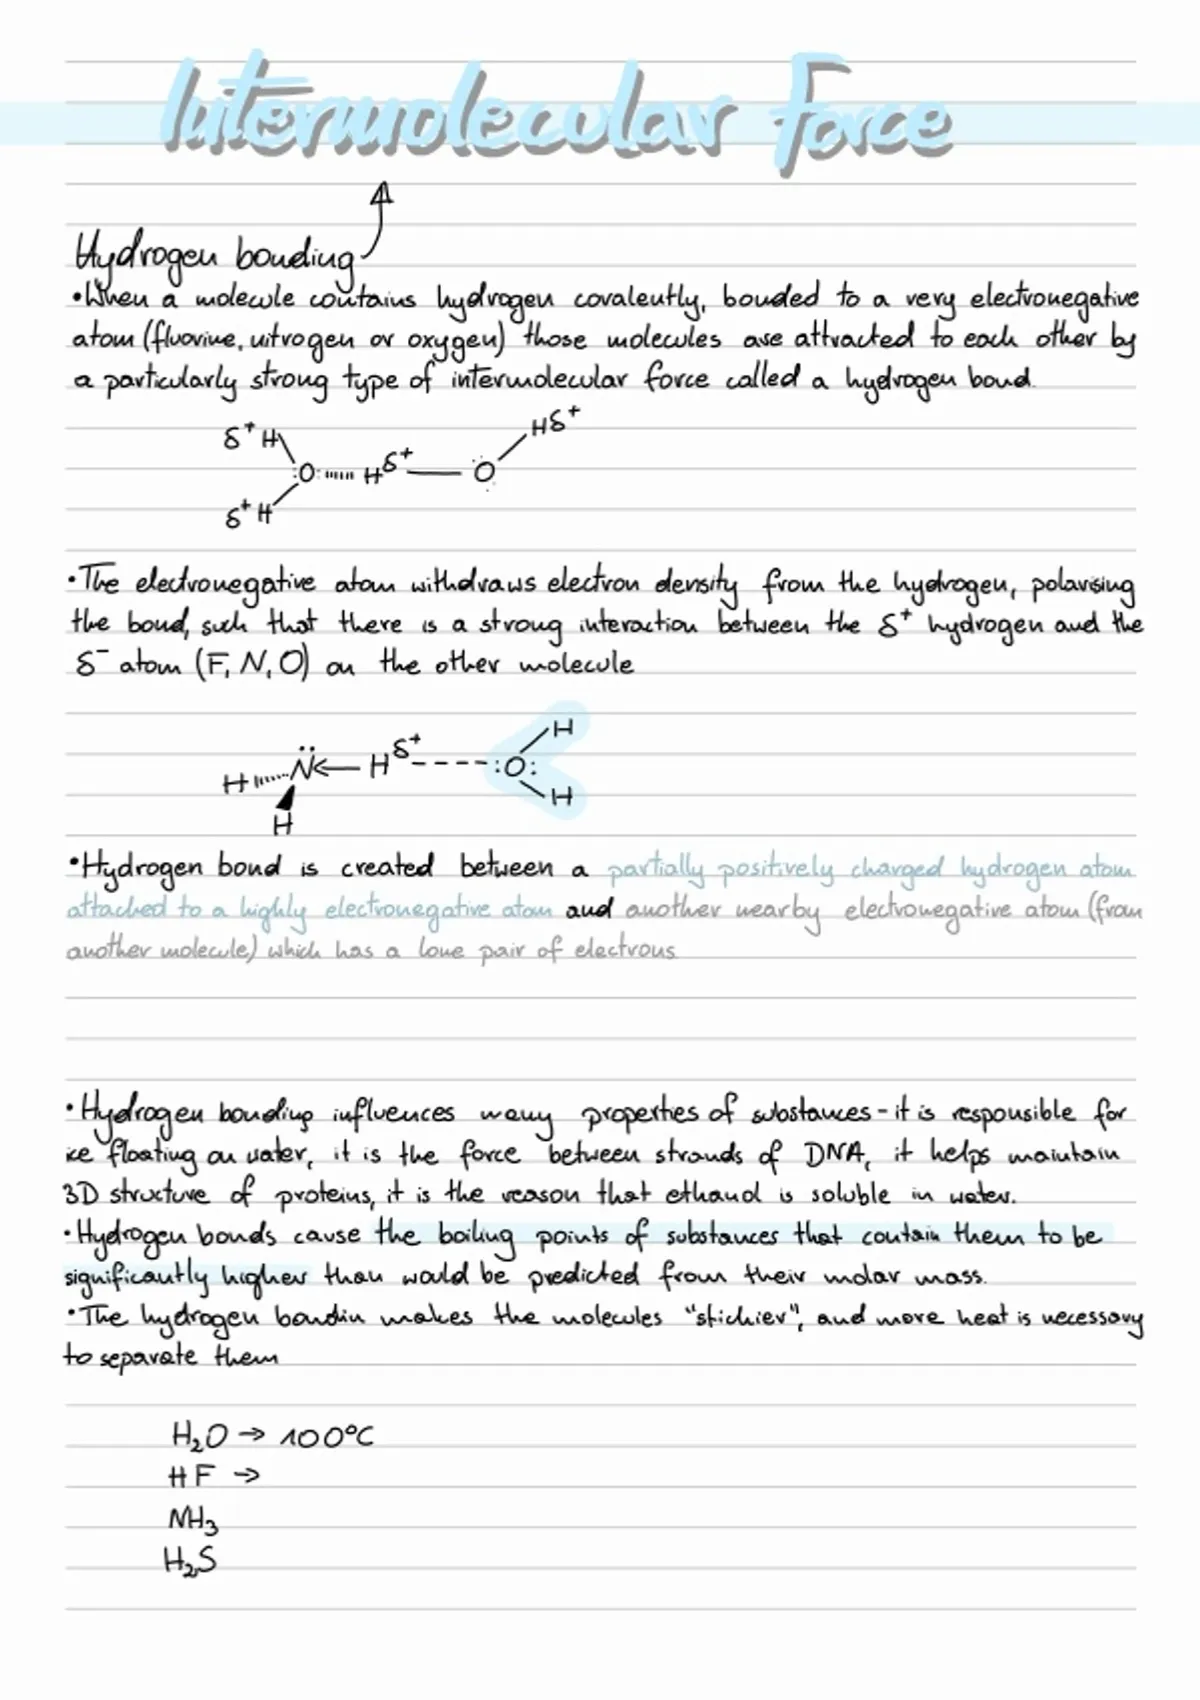 Intermolecular Force
Hydrogen bonding
•When a molecule contains hydrogen covalently, bonded to a very electronegative
atom (fluorine, nitrogen or oxygen) those molecules are attracted to each other by
a particularly strong type of intermolecular force called a hydrogen bond.
Hδ+
δ+ H
:O: Hδ+ O
δ+ H
•The electronegative atom withdraws electron density from the hydrogen, polarising
the bond, such that there is a strong interaction between the δ+ hydrogen and the
δ- atom (F, N, O) on the other molecule
H
H N H δ+ :O:
H
H
•Hydrogen bond is created between a partially positively charged hydrogen atom
attached to a highly electronegative atom and another nearby electronegative atom (from
another molecule) which has a lone pair of electrons.
•Hydrogen bonding influences many properties of substances - it is responsible for
ice floating on water, it is the force between strands of DNA, it helps maintain
3D structure of proteins, it is the reason that ethanol is soluble in water.
•Hydrogen bonds cause the boiling points of substances that contain them to be
significantly higher than would be predicted from their molar mass.
•The hydrogen bondin makes the molecules "stickier", and more heat is necessary
to separate them
H₂O → 100°C
HF →
NH₃
H₂S